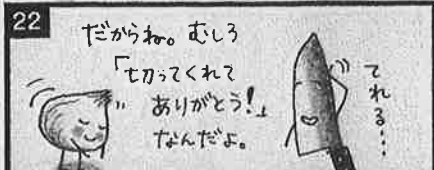 22
だからね。むしろ
「切ってくれて
ありがとう！」
なんだよ。
てれる…